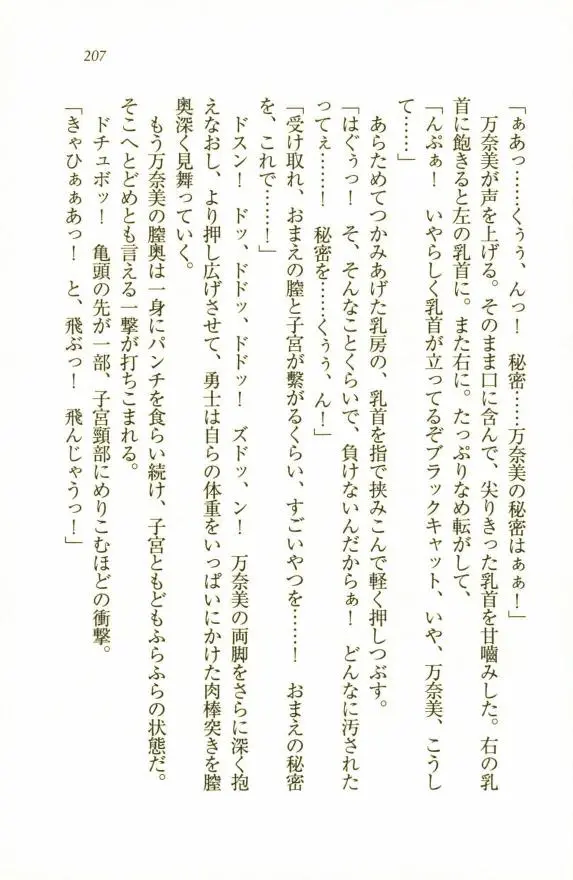 207
「ぁあっ……くぅぅ、んっ！　秘密……万奈美の秘密はぁぁ！」
　万奈美が声を上げる。そのまま口に含んで、尖りきった乳首を甘嚙みした。右の乳
首に飽きると左の乳首に。また右に。たっぷりなめ転がして、
「んぷぁ！　いやらしく乳首が立ってるぞブラックキャット、いや、万奈美、こうし
て……」
　あらためてつかみあげた乳房の、乳首を指で挟みこんで軽く押しつぶす。
「はぐぅっ！　そ、そんなことくらいで、負けないんだからぁ！　どんなに汚された
ってぇ……！　秘密を……くぅぅ、ん！」
「受け取れ、おまえの膣と子宮が繫がるくらい、すごいやつを……！　おまえの秘密
を、これで……！」
　ドスン！　ドッ、ドドッ、ドドッ！　ズドッ、ン！　万奈美の両脚をさらに深く抱
えなおし、より押し広げさせて、勇士は自らの体重をいっぱいにかけた肉棒突きを膣
奥深く見舞っていく。
　もう万奈美の膣奥は一身にパンチを食らい続け、子宮ともどもふらふらの状態だ。
そこへとどめとも言える一撃が打ちこまれる。
　ドチュボッ！　亀頭の先が一部、子宮頸部にめりこむほどの衝撃。
「きゃひぁぁあっ！　と、飛ぶっ！　飛んじゃうっ！」